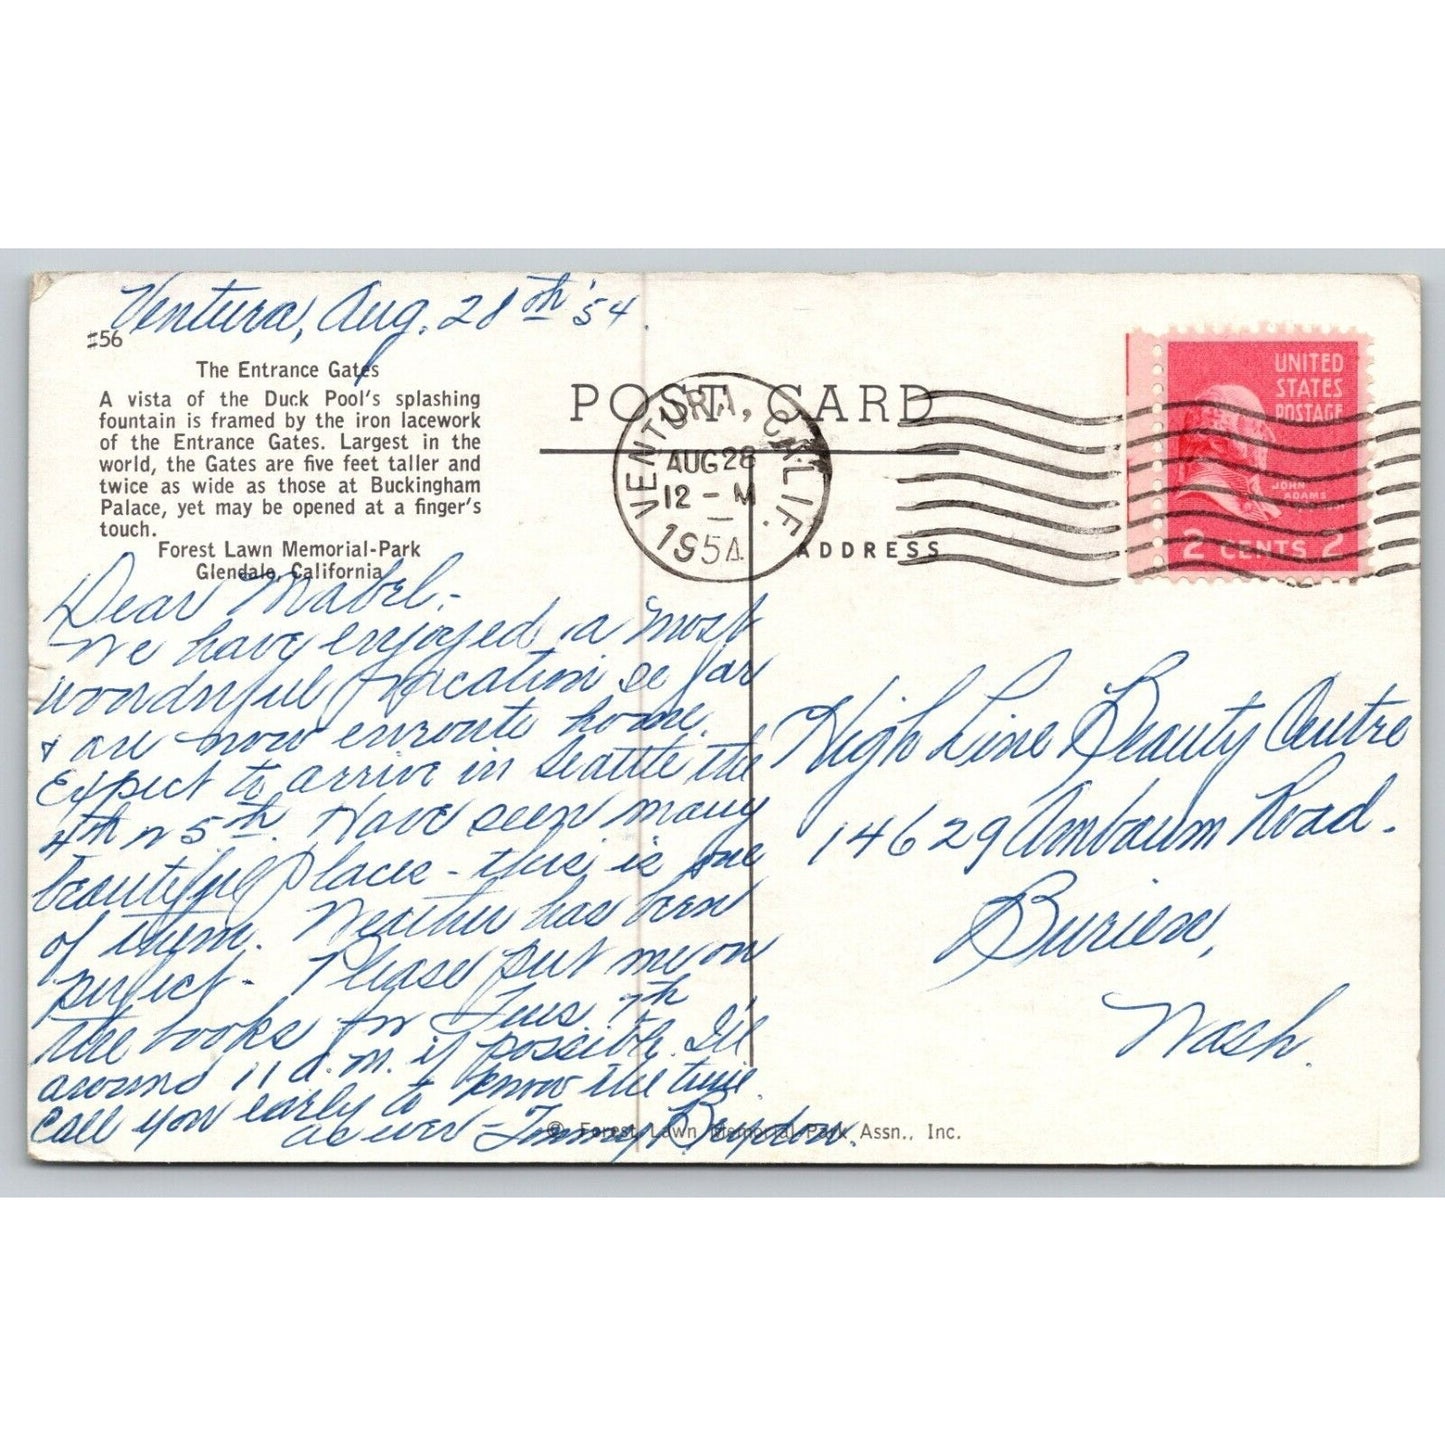 Ventura, Aug. 28th '54
#56
The Entrance Gates
A vista of the Duck Pool's splashing
fountain is framed by the iron lacework
of the Entrance Gates. Largest in the
world, the Gates are five feet taller and
twice as wide as those at Buckingham
Palace, yet may be opened at a finger's
touch.
Forest Lawn Memorial-Park
Glendale, California
Dear Mabel,-
We have enjoyed a most
wonderful vacation so far
& are now enroute home.
Expect to arrive in Seattle the
4th or 5th. Have seen many
beautiful places - this is one
of them. Weather has been
perfect. Please put me on
the books for Tues. 7th
around 11 a.m. if possible. I'll
call you early to know the time.
as ever -
© Forest Lawn Memorial-Park Assn., Inc.
POST CARD
VENTURA, CALIF.
AUG 28
12 - M
1954
ADDRESS
UNITED
STATES
POSTAGE
JOHN
ADAMS
2 CENTS 2
High Line Beauty Centre
14629 Ambaum Road.
Burien,
Wash.